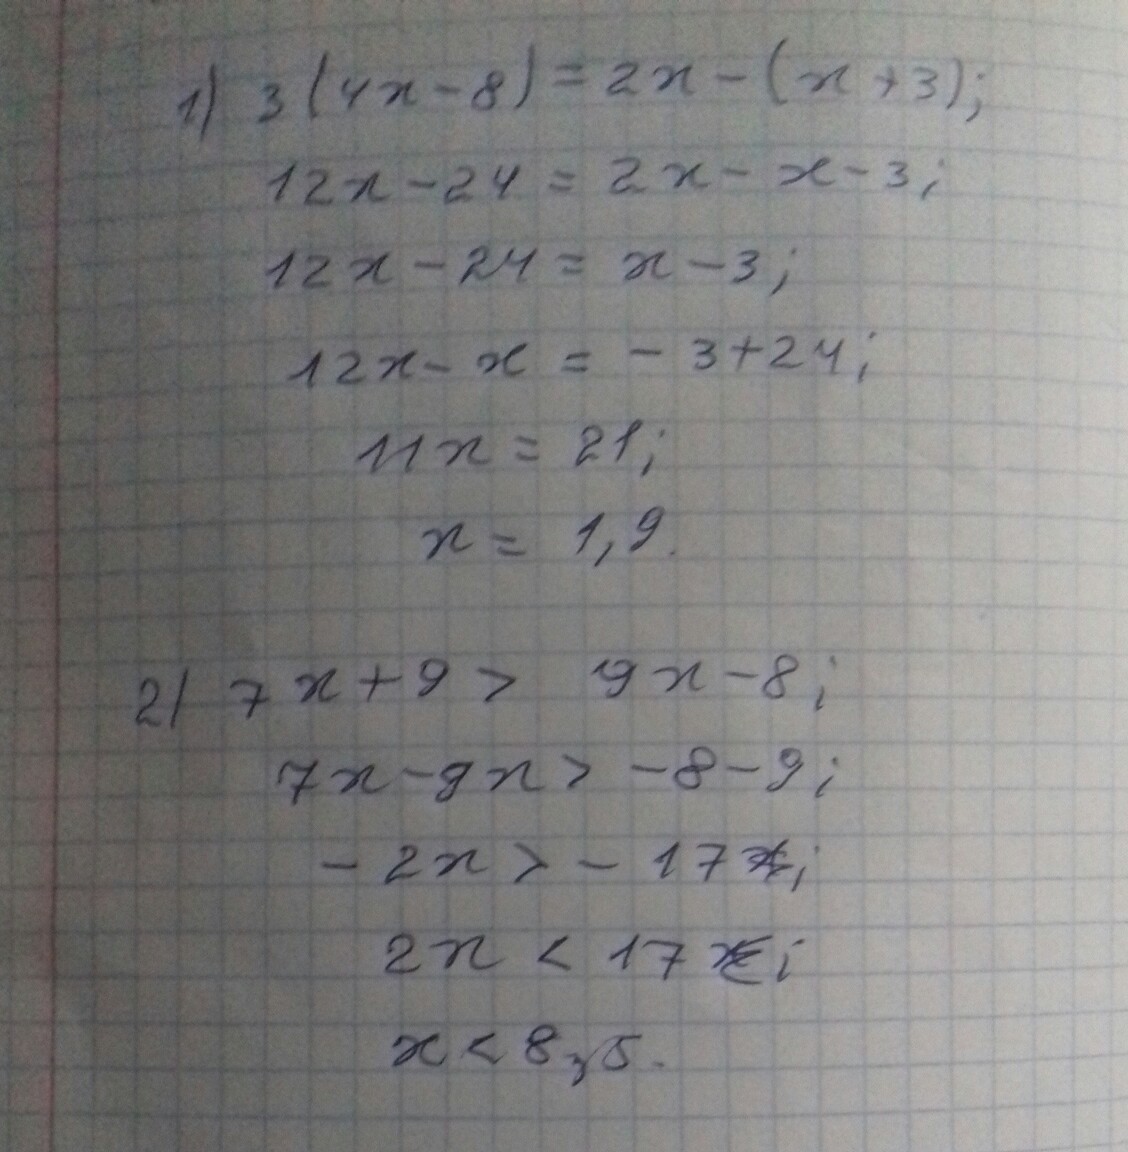 1) 3(4x-8)=2x-(x+3);
12x-24=2x-x-3;
12x-24=x-3;
12x-x=-3+24;
11x=21;
x=1,9.
2) 7x+9> 9x-8;
7x-9x>-8-9;
-2x>-17;
2x<17;
x<8,5.